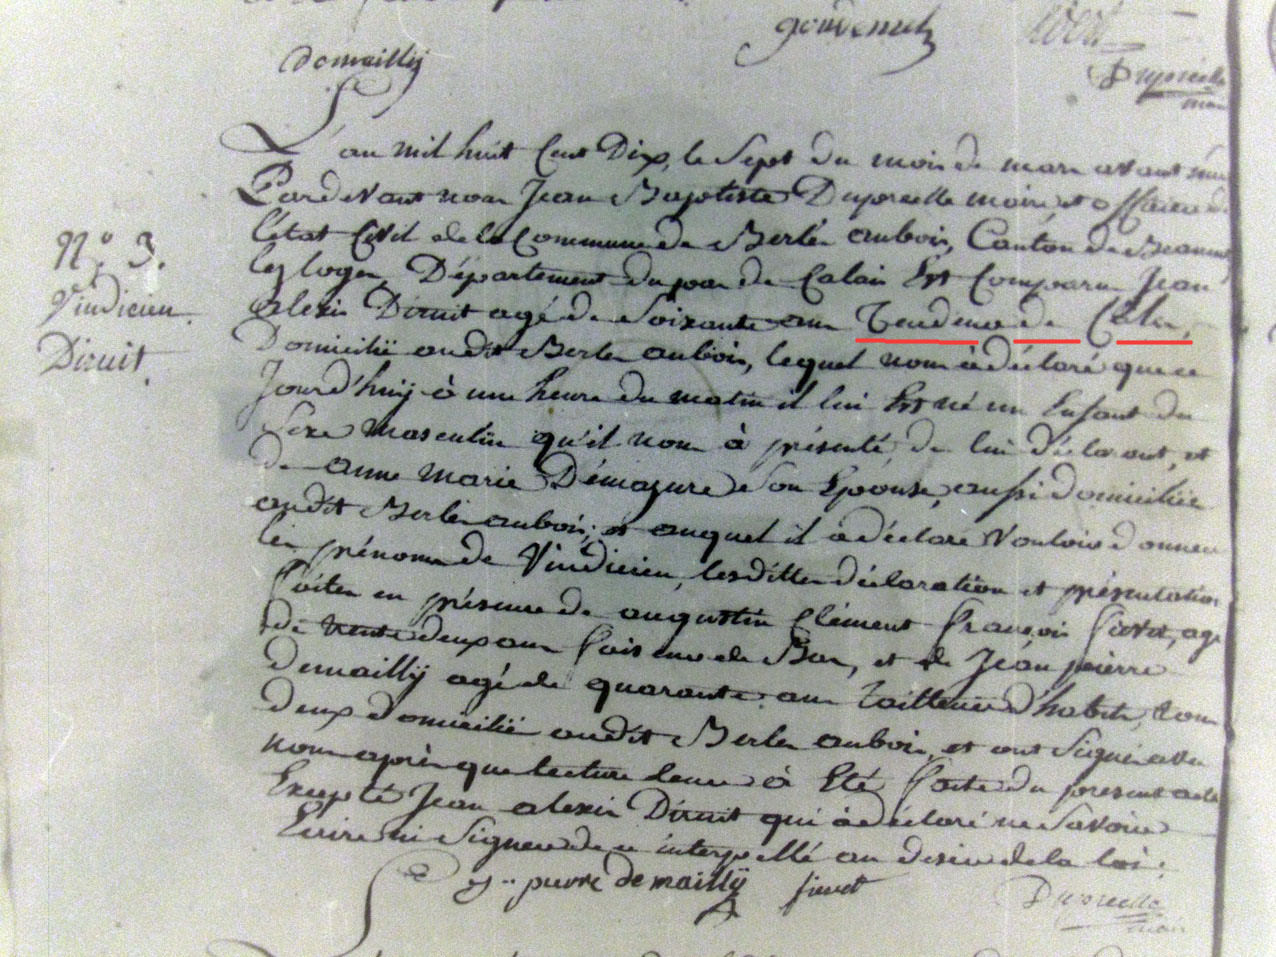 gouvernet
demaillÿ
Dupreelle
maire
L'an mil huit Cent Dix, le Sept du mois de mars avant midi
Pardevant nous Jean Baptiste Dupreelle maire et officier de
l'état Civil de la Commune de Berles aubois, Canton de Beaumetz
les loges, Département du pas de Calais Est Comparu Jean
N.o 3.
Vindicien
Diruit.
alexis Diruit agé de Soixante ans de
Domicilié audit Berles aubois, lequel nous à déclaré que ce
Jourd'huÿ à une heure du matin il lui Est né un Enfant du
Sexe Masculin qu'il nous à présenté, de lui déclarant, et
de anne marie Démazure Son Epouse, aussi domiciliée
audit Berles aubois; et auquel il à déclaré Vouloir donner
les prénoms de Vindicien, lesdittes déclaration et présentation
faites en présence de augustin Clément françois fievet, agé
de trente deux ans faiseur de Bas, et de Jean pierre
Demaillÿ agé de quarante ans tailleur d'habits, tous
deux domiciliés audit Berles aubois, et ont Signé avec
nous après que lecture leur à Eté faite du présent acte
Excepté Jean alexis Diruit qui à déclaré ne Savoir
Ecrire ni Signer de ce interpellé au désir de la loi.
j.. pierre demaillÿ fievet
Dupreelle
maire